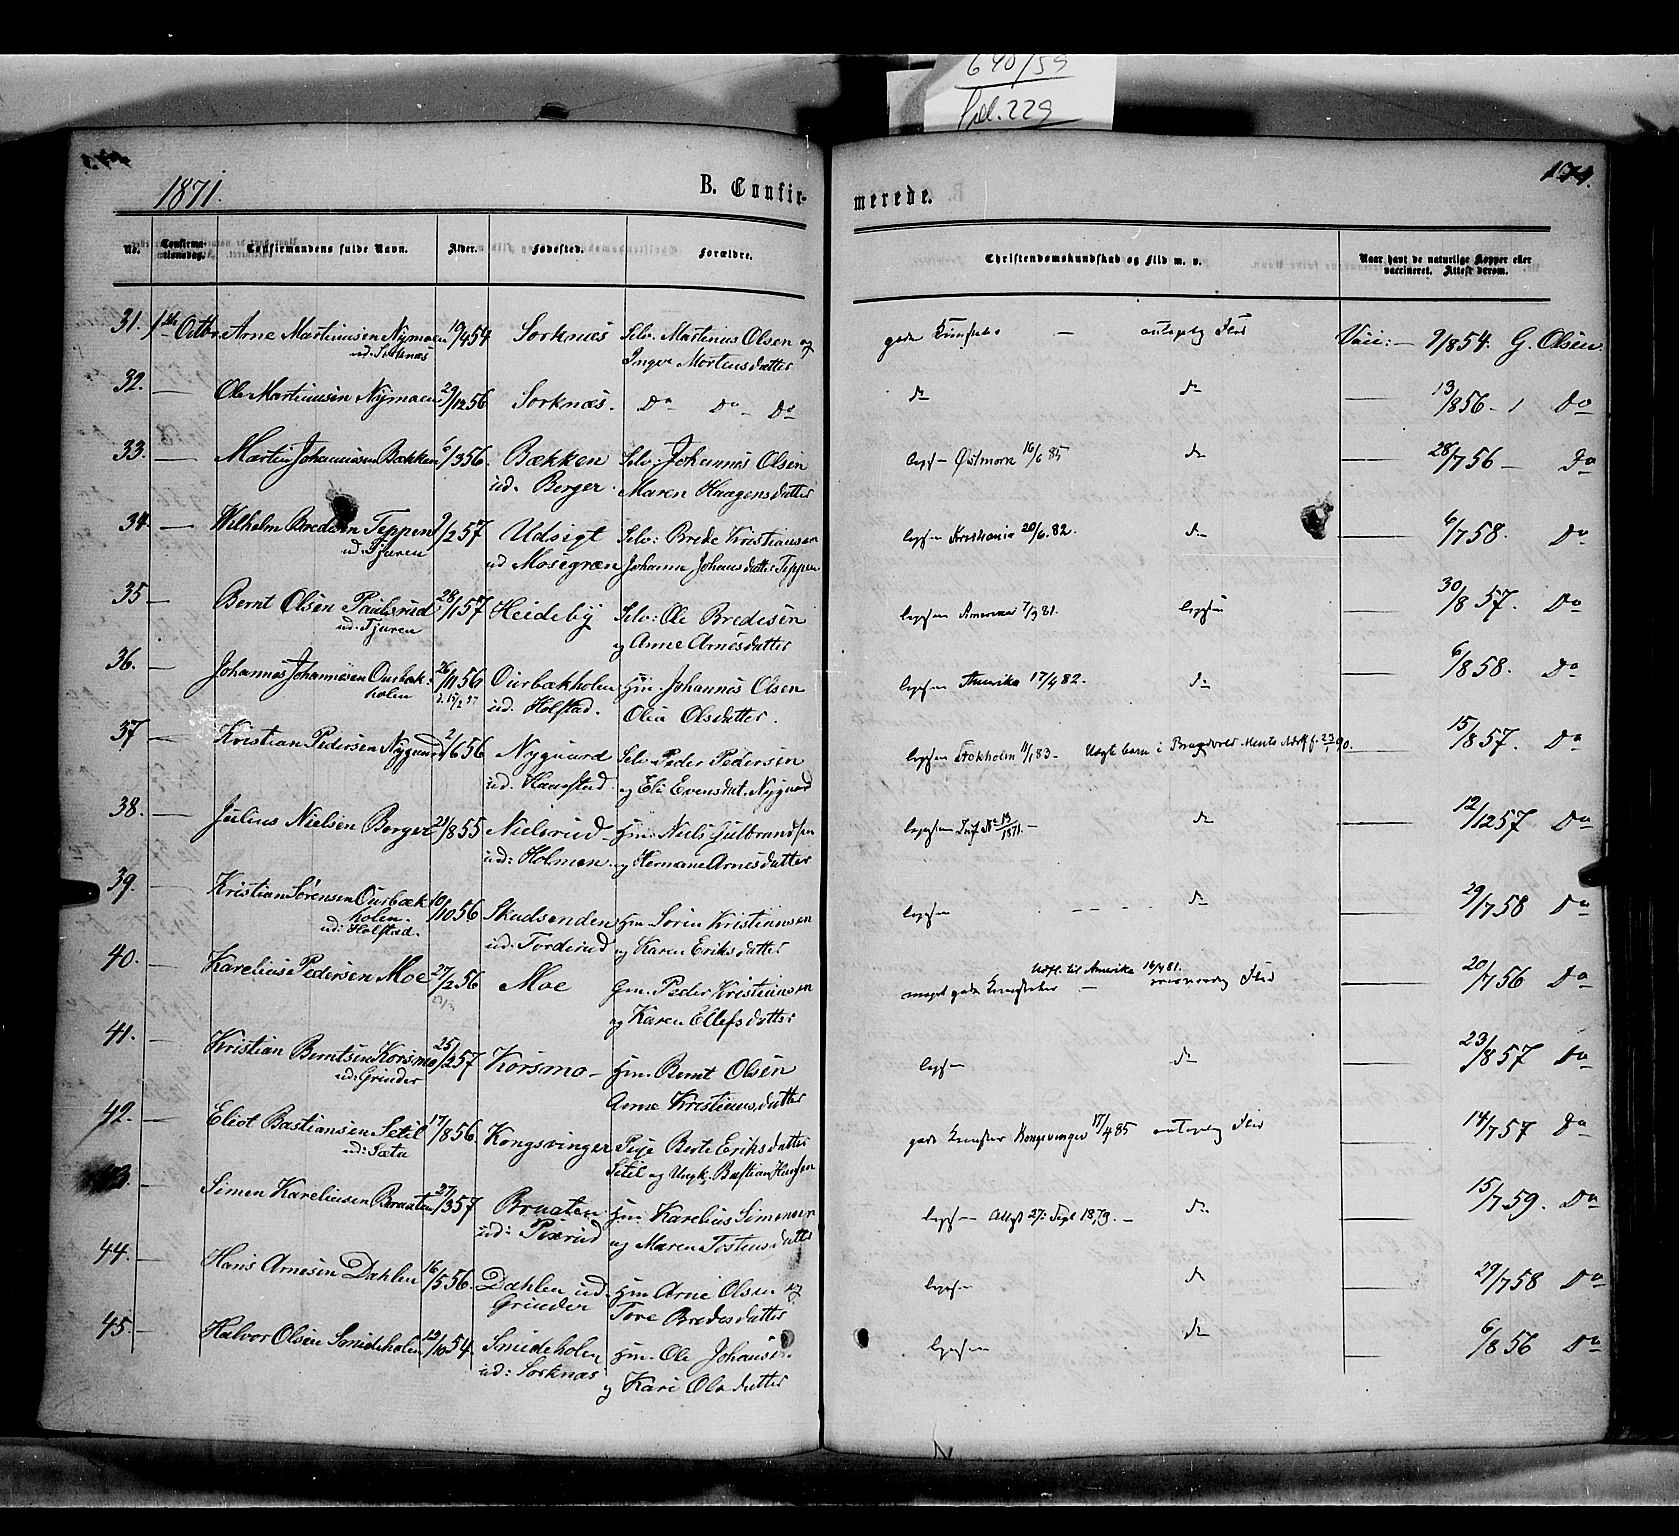 640/59
fol. 229
174.
1871.
B. Confir-
merede.
No.
Confirma-
tionsdag.
Confirmandens fulde Navn.
Alder.
Fødested.
Forældre.
Christendomskundskab og Flid m. v.
Naar havt de naturlige Kopper eller
vaccineret. Attest derom.
31. 1ste Octbr. Arne Martinusen Nymoen 10/4 54 Sorknæs Selv. Martinus Olsen og
ud. Sorknæs Inger Mortensdatter
gode Kundsk. — Flid Vacc: — 9/8 54. G. Olsen.
32. — Ole Martinusen Nymoen 29/12 56 Sorknæs. Do Do Do
do do — 13/8 56 - Do
33. — Martin Johannesen Bækken 6/3 56. Bækken Selv: Johannes Olsen
ud. Berger. Maren Haagensdatter
Østmark 16/6 85 do — 28/7 56 — Do
34. — Wilhelm Bredesen Teppen 9/2 57 Udsigt Selv: Brede Kristiansen
ud. Tjuren ud Mosegren Johanne Johansdatter Teppen
Kristiania 20/6. 82. do — 6/7 58. Do
35 — Bernt Olsen Paulsrud 28/1 57 Heideby Selv: Ole Bredesen
ud. Tjuren og Anne Arnesdatter
Amerika 7/9 81. — 30/8 57. Do
36. — Johannes Johannesen Ourbæk- 26/11 56 Ourbækholen Gm. Johannes Olsen
holen ud. Holstad. Olea Olsdatter.
Amerika 17/4 82. do — 6/8 58. Do
37 — Kristian Pedersen Nyguard 2/6 56 Nyguard Selv Peder Pedersen
ud. Haugstad. og Eli Evensdat. Nyguard
Stokholm 11/1 83 — Uægt barn i Brandvold f. 23/1 90. — 15/8 57. Do
38. — Julius Nielsen Berger 21/8 55 Nielsrud Gm. Niels Gulbrandsen
ud: Holmen og Hermane Arnesdatter
13/1871. — do — 12/12 57 Do
39. — Kristian Sørensen Ourbæk 10/10 56 Skudsenden Gm. Søren Kristiansen
holen.
ud: Holstad. ud: Torderud og Karen Eriksdatter
do — 29/7 58 Do
40. — Karelius Pedersen Moe 27/2 56 Moe Gm. Peder Kristiansen
og Karen Ellefsdatter
Udfl. til Amerika 16/4 81.
meget gode Kundskaber — Flid — 20/7 56 Do
41. — Kristian Berntsen Korsmo 25/2 57 Korsmo — Gm. Bernt Olsen
ud: Grinder Anne Kristiansdatter
do — 23/8 57 Do
42. — Eliot Bastiansen Setil 17/8 56. Kongsvinger Pige Berte Eriksdatter
ud: Sæta Setil og Ungk. Bastian Hansen
gode Kundsk. Kongsvinger 17/4 85 Flid — 14/7 57 Do
43. — Simen Kareliusen Braaten 27/3 57 Braaten Gm. Karelius Simensen
ud: Pixrud og Maren Tostensdatter
Attest 27: Sept 1879. — do — 15/7 59. Do
44. — Hans Arnesen Dæhlen 16/5 56. Dæhlen ud. Gm Arne Olsen og
Grinder Tore Bredesdatter
do — 29/7 58 Do
45. — Halvor Olsen Smideholen 12/10 54 Smideholen Gm. Ole Johansen
ud: Sorknæs og Kari Olsdatter
do — 6/8 56 Do